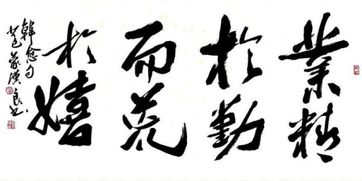 業精
於勤
而荒
於嬉
韓愈句